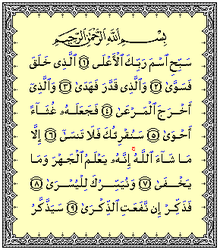 بِسْمِ ٱللَّهِ ٱلرَّحْمَٰنِ ٱلرَّحِيمِ
سَبِّحِ ٱسْمَ رَبِّكَ ٱلْأَعْلَى ١ ٱلَّذِى خَلَقَ
فَسَوَّىٰ ٢ وَٱلَّذِى قَدَّرَ فَهَدَىٰ ٣ وَٱلَّذِىٓ
أَخْرَجَ ٱلْمَرْعَىٰ ٤ فَجَعَلَهُۥ غُثَآءً
أَحْوَىٰ ٥ سَنُقْرِئُكَ فَلَا تَنسَىٰٓ ٦ إِلَّا
مَا شَآءَ ٱللَّهُ إِنَّهُۥ يَعْلَمُ ٱلْجَهْرَ وَمَا
يَخْفَىٰ ٧ وَنُيَسِّرُكَ لِلْيُسْرَىٰ ٨
فَذَكِّرْ إِن نَّفَعَتِ ٱلذِّكْرَىٰ ٩ سَيَذَّكَّرُ